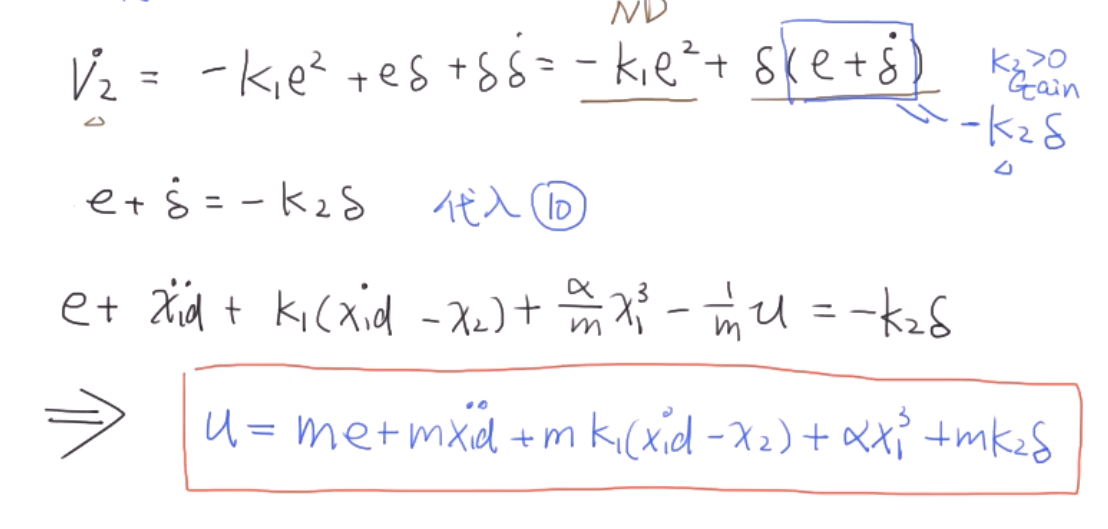 ND
V̇₂ = -k₁e² + eδ + δδ̇ = -k₁e² + δ(e + δ̇)
k₂>0
Gain
-k₂δ
e + δ̇ = -k₂δ 代入 ⑩
e + ẍ₁d + k₁(ẋ₁d - x₂) + α/m x₁³ - 1/m u = -k₂δ
⇒ u = me + mẍ₁d + mk₁(ẋ₁d - x₂) + αx₁³ + mk₂δ